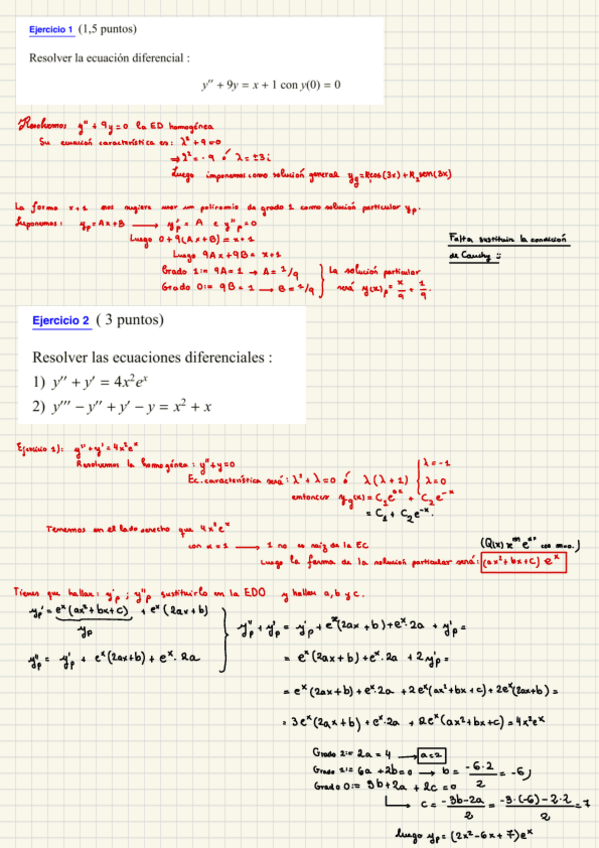 Ejercicio 1 (1,5 puntos)
Resolver la ecuación diferencial :
y'' + 9y = x + 1 con y(0) = 0
Resolvemos y'' + 9y = 0 la ED homogénea
Su ecuación característica es: λ² + 9 = 0
⇒ λ² = -9 ó λ = ±3i
Luego imponemos como solución general y_g = R₁cos(3x) + R₂sen(3x)
La forma x+1 nos sugiere usar un polinomio de grado 1 como solución particular y_p.
Suponemos: y_p = Ax+B → y'_p = A e y''_p = 0
Luego 0 + 9(Ax+B) = x+1
Luego 9Ax + 9B = x+1
Grado 1:= 9A = 1 → A = 1/9
Grado 0:= 9B = 1 → B = 1/9
La solución particular
será y(x)_p = x/9 + 1/9.
Falta sustituir la condición
de Cauchy :
Ejercicio 2 ( 3 puntos)
Resolver las ecuaciones diferenciales :
1) y'' + y' = 4x²eˣ
2) y''' − y'' + y' − y = x² + x
Ejercicio 1): y'' + y' = 4x²eˣ
Resolvemos la homogénea: y'' + y = 0
Ec. característica será: λ² + λ = 0 ó λ(λ+1) λ = -1
λ = 0
entonces y_g(x) = C₁e⁰ˣ + C₂e⁻ˣ
= C₁ + C₂e⁻ˣ.
Tenemos en el lado derecho que 4x²eˣ
con α = 1 → 1 no es raíz de la Ec
(Q(x) xᵐ e^αx con m=0.)
Luego la forma de la solución particular será: (ax² + bx + c) eˣ
Tienes que hallar: y'_p ; y''_p sustituirlo en la EDO y hallar a, b y c.
y'_p = eˣ(ax² + bx + c) + eˣ(2ax + b)
y_p
y''_p = y'_p + eˣ(2ax+b) + eˣ·2a
y''_p + y'_p = y'_p + eˣ(2ax+b) + eˣ·2a + y'_p =
= eˣ(2ax+b) + eˣ·2a + 2y'_p =
= eˣ(2ax+b) + eˣ·2a + 2eˣ(ax²+bx+c) + 2eˣ(2ax+b) =
= 3eˣ(2ax+b) + eˣ·2a + 2eˣ(ax²+bx+c) = 4x²eˣ
Grado 2:= 2a = 4 → a = 2
Grado 1:= 6a + 2b = 0 → b = -6·2/2 = -6
Grado 0:= 3b + 2a + 2c = 0
→ c = -3b-2a/2 = -3·(-6)-2·2/2 = 7
luego y_p = (2x² - 6x + 7)eˣ